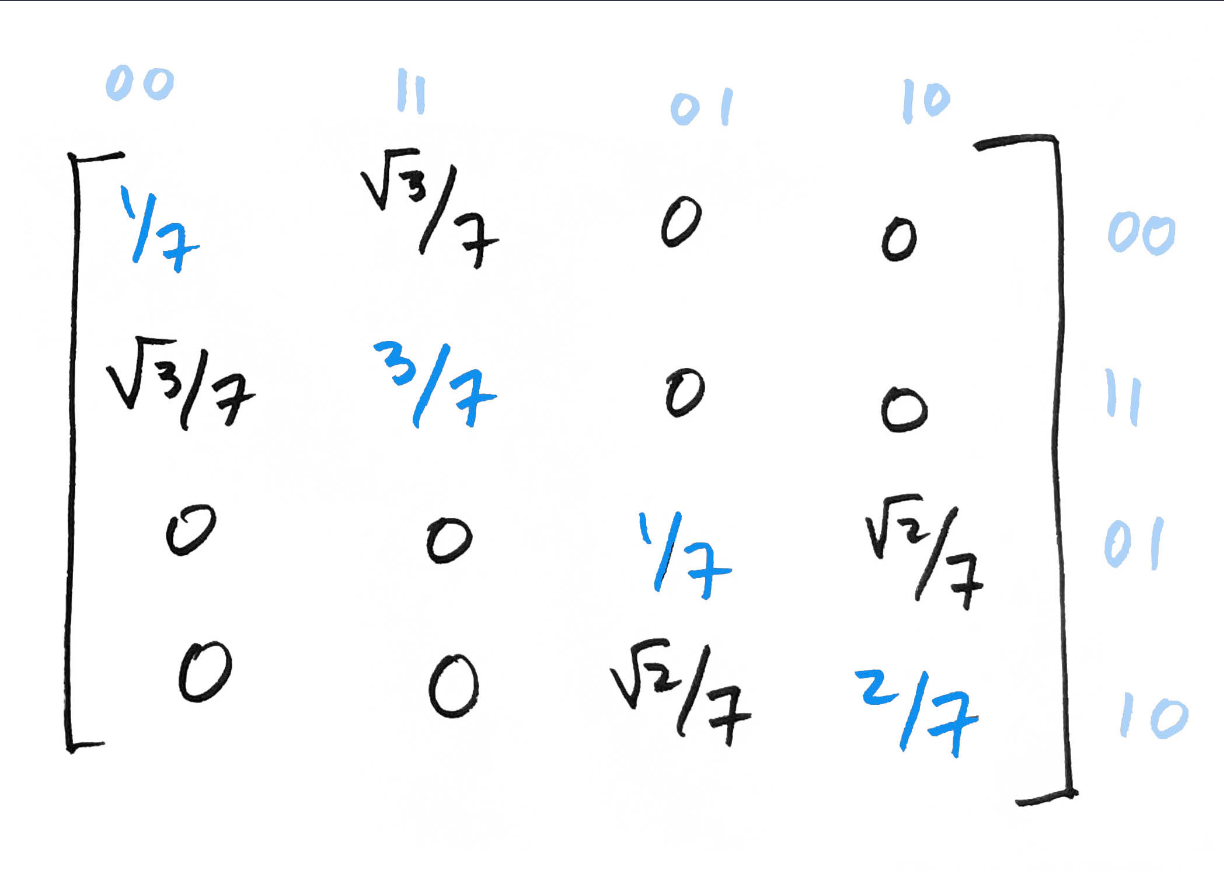 00 11 01 10
1/7 √3/7 0 0 00
√3/7 3/7 0 0 11
0 0 1/7 √2/7 01
0 0 √2/7 2/7 10